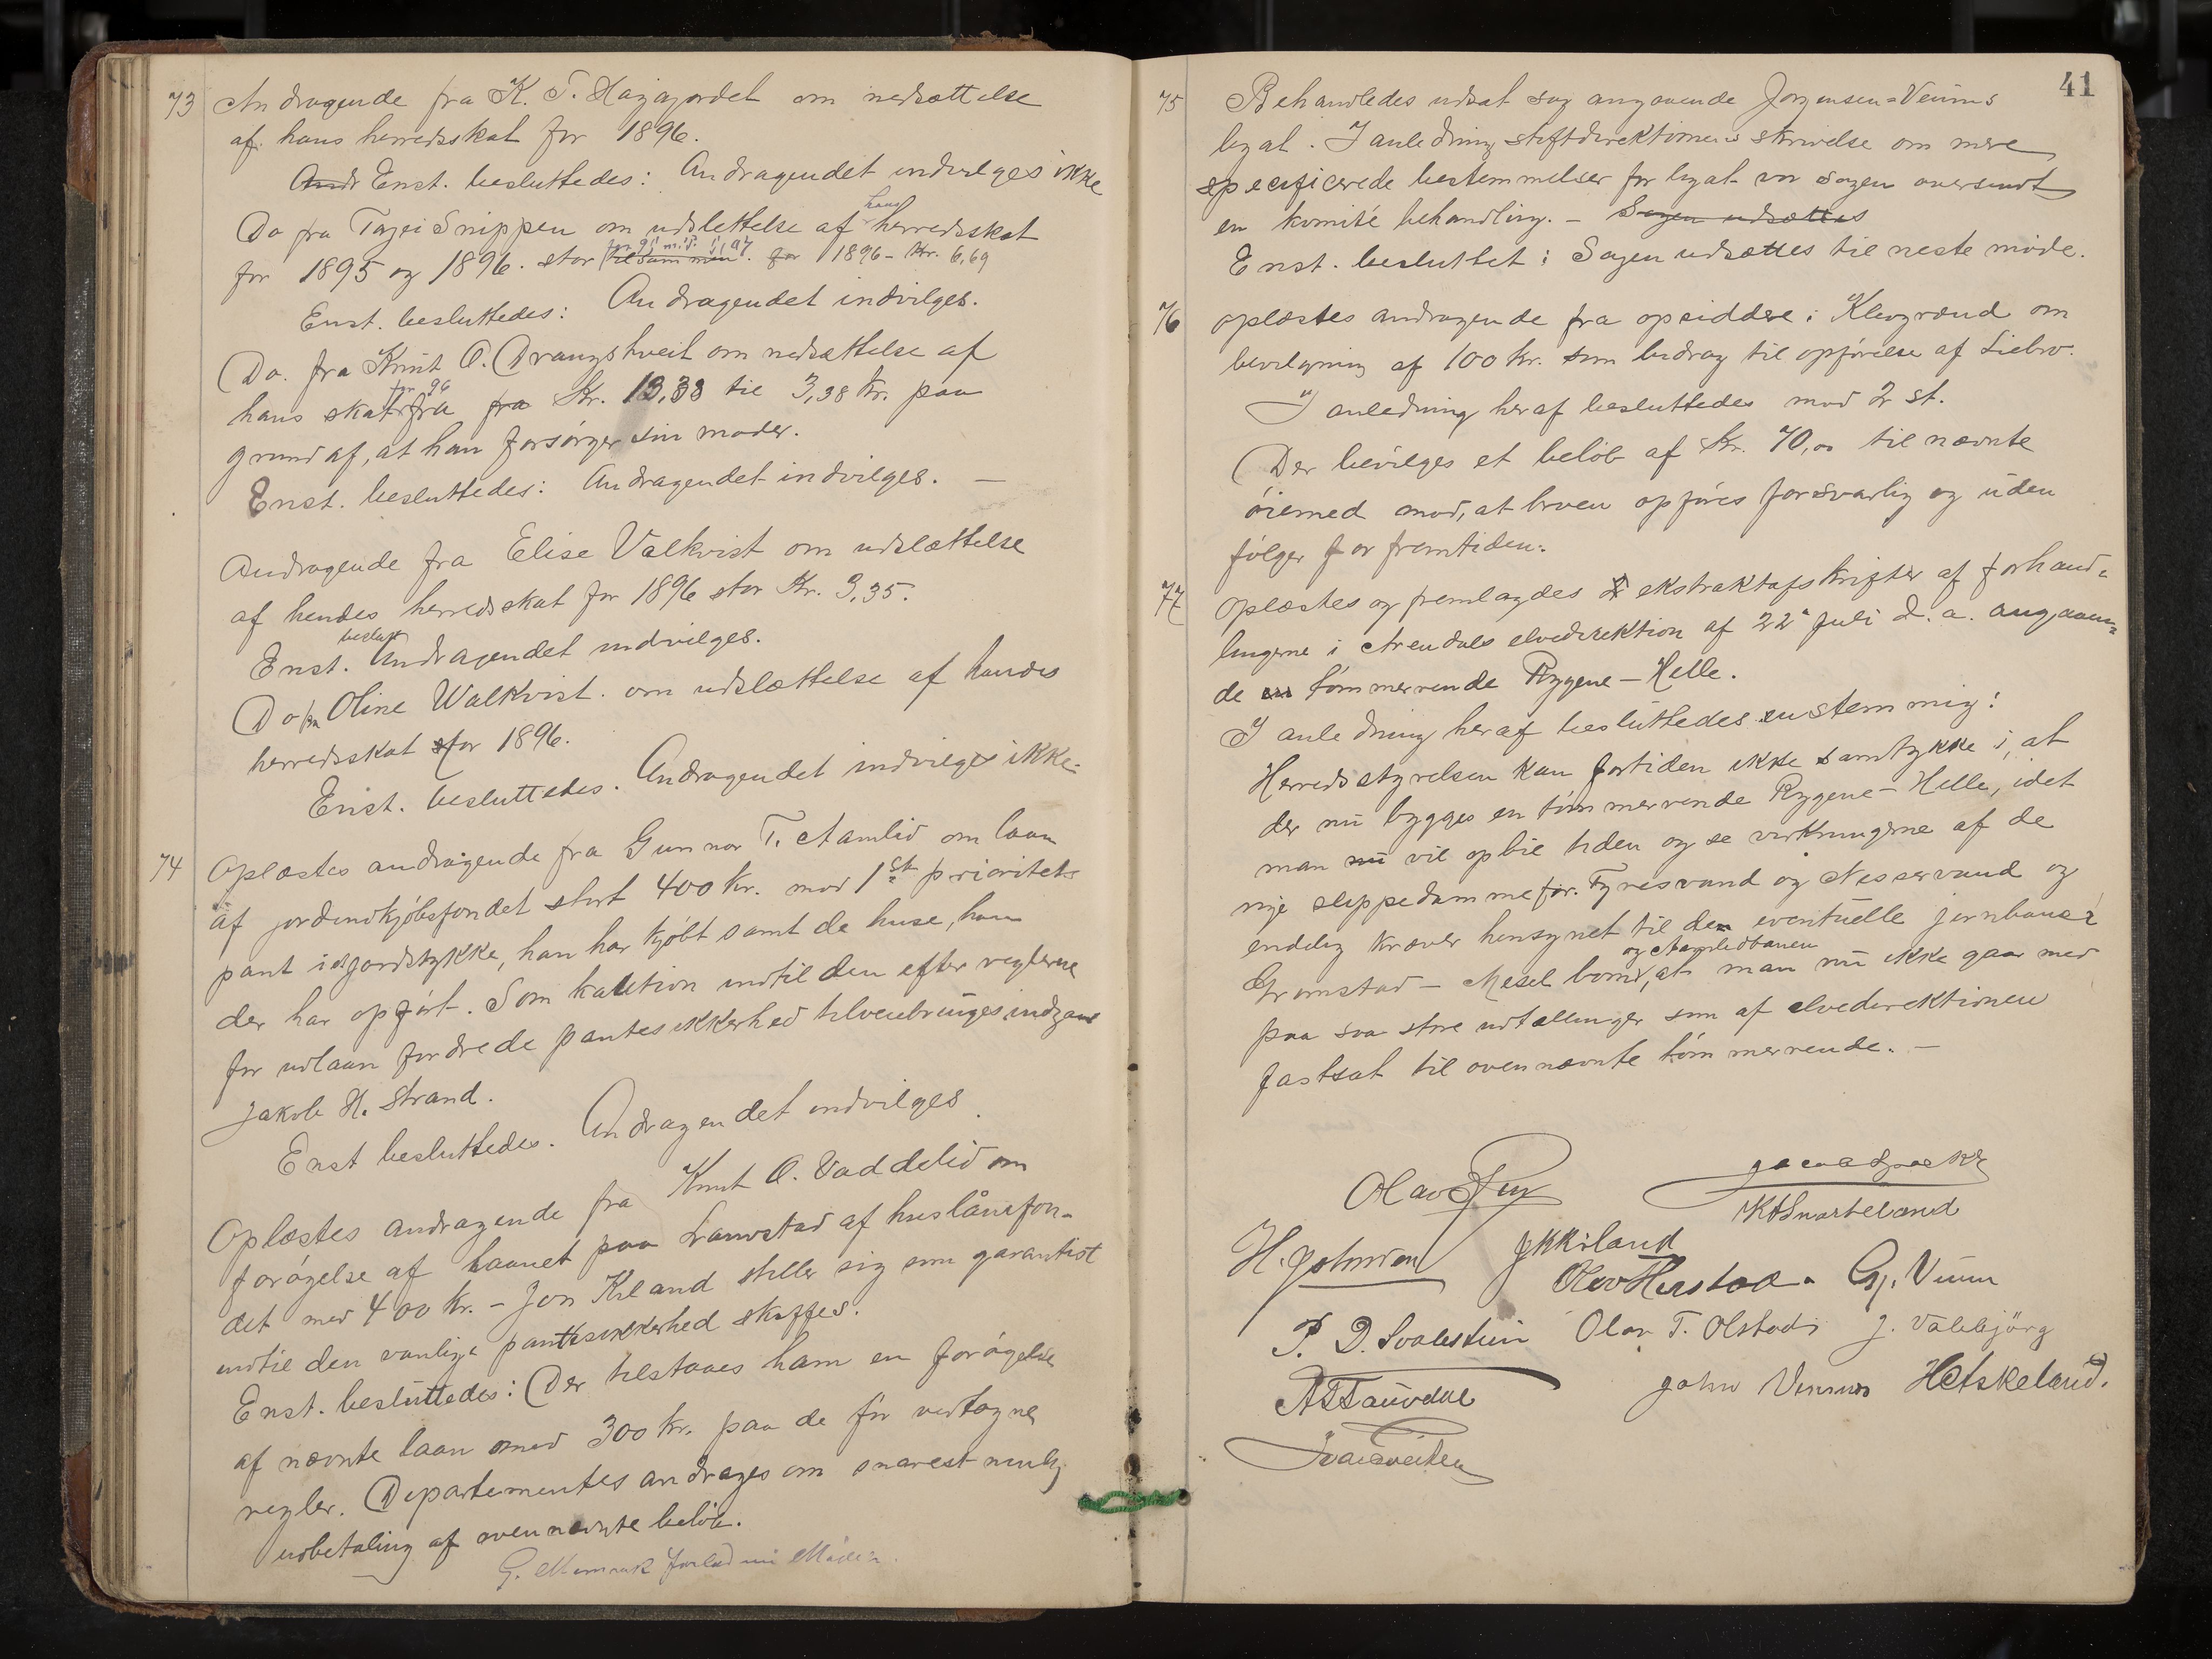 73 Andragende fra K. T. Høgagordet om nedsættelse
af hans herredsskat for 1896.
Andr Enst. besluttedes: Andragendet indvilges ikke
Do fra Tarjei Snippen om udslettelse af hans herredsskat
for 1895 og 1896. stor tilsammen. for 1896 - Kr. 6,69
Enst. besluttedes: Andragendet indvilges.
Do. fra Knut O. Drangshveit om nedsættelse af
hans skat for 96 fra fra Kr. 13,38 til 3,38 kr. paa
grund af, at han forsørger sin moder.
Enst. besluttedes: Andragendet indvilges. —
Andragende fra Elise Valkvist om udslættelse
af hendes herredsskat for 1896 stor Kr. 3,35.
Enst. beslut Andragendet indvilges.
Do fra Oline Walkvist. om udslættelse af hendes
herredsskat for 1896.
Enst. besluttedes. Andragendet indvilges ikke.
74 Oplæstes andragende fra Gunnar T. Aamlid om laan
af jordindkjøbsfondet stort 400 kr. mod 1ste prioritets
pant i et jordstykke, han har kjøbt samt de huse, han
der har opført. Som kaution indtil den efter reglerne
for udlaan fordrede pantesikkerhed tilveiebringes indgaar
Jakob H. Strand.
Enst besluttedes. Andragendet indvilges.
Oplæstes andragende fra Knut O. Vaddelid om
forøgelse af laanet paa Lauvstad af huslånsfon-
det med 400 kr. - Jon Kiland stiller sig som garantist
indtil den vanlige pantesikkerhed skaffes.
Enst. besluttedes: Der tilstaaes ham en forøgelse
af nævnte laan med 300 kr. paa de før vedtagne
regler. Departementet andrages om snarest mulig
udbetaling af ovennævnte beløb.
G. forlod nu Mødet.
41
75 Behandledes udsat sag angaaende Jørgensen=Veums
legat. I anledning stiftdirektionens skrivelse om mere
specificerede bestemmelser for legat var sagen oversendt
en komité behandling. - Sagen udsættes
Enst. besluttet: Sagen udsættes til neste møde.
76 Oplæstes andragende fra opsiddere i Klevgrænd om
bevilgning af 100 kr. som bidrag til opførelse af Liebro.
I anledning heraf besluttedes mod 2 st.
Der bevilges et beløb af kr. 70,00 til nævnte
øiemed mod, at broen opføres forsvarlig og uden
følger for fremtiden.
77 Oplæstes og fremlagdes 2 ekstraktafskrifter af forhand-
lingerne i Arendals elvedirektion af 22de Juli d. a. angaaen-
de en tømmerrende Rygene - Helle.
I anledning heraf besluttedes enstemmig:
Herredsstyrelsen kan fortiden ikke samtykke i, at
der nu bygges en tømmerrende Rygene - Helle, idet
man nu vil opbie tiden og se virkningerne af de
nye slippedamme for. Fyresvand og Nesservand og
endelig kræver hensynet til den eventuelle jernbane
Grimstad - Mesel bom og Aamlidbanen, at man nu ikke gaar med
paa saa store udtællinger som af elvedirektionen
fastsat til ovennævnte tømmerrende. —
Olav
K Snarteland
H. Johnson
J K Kiland
Olav Herstad. G. Veum
P. D. Svalestuen Olav T. Olstad J. Valebjörg
A T Tauvdal John Veum H Eskeland.
Ivar Tveiten